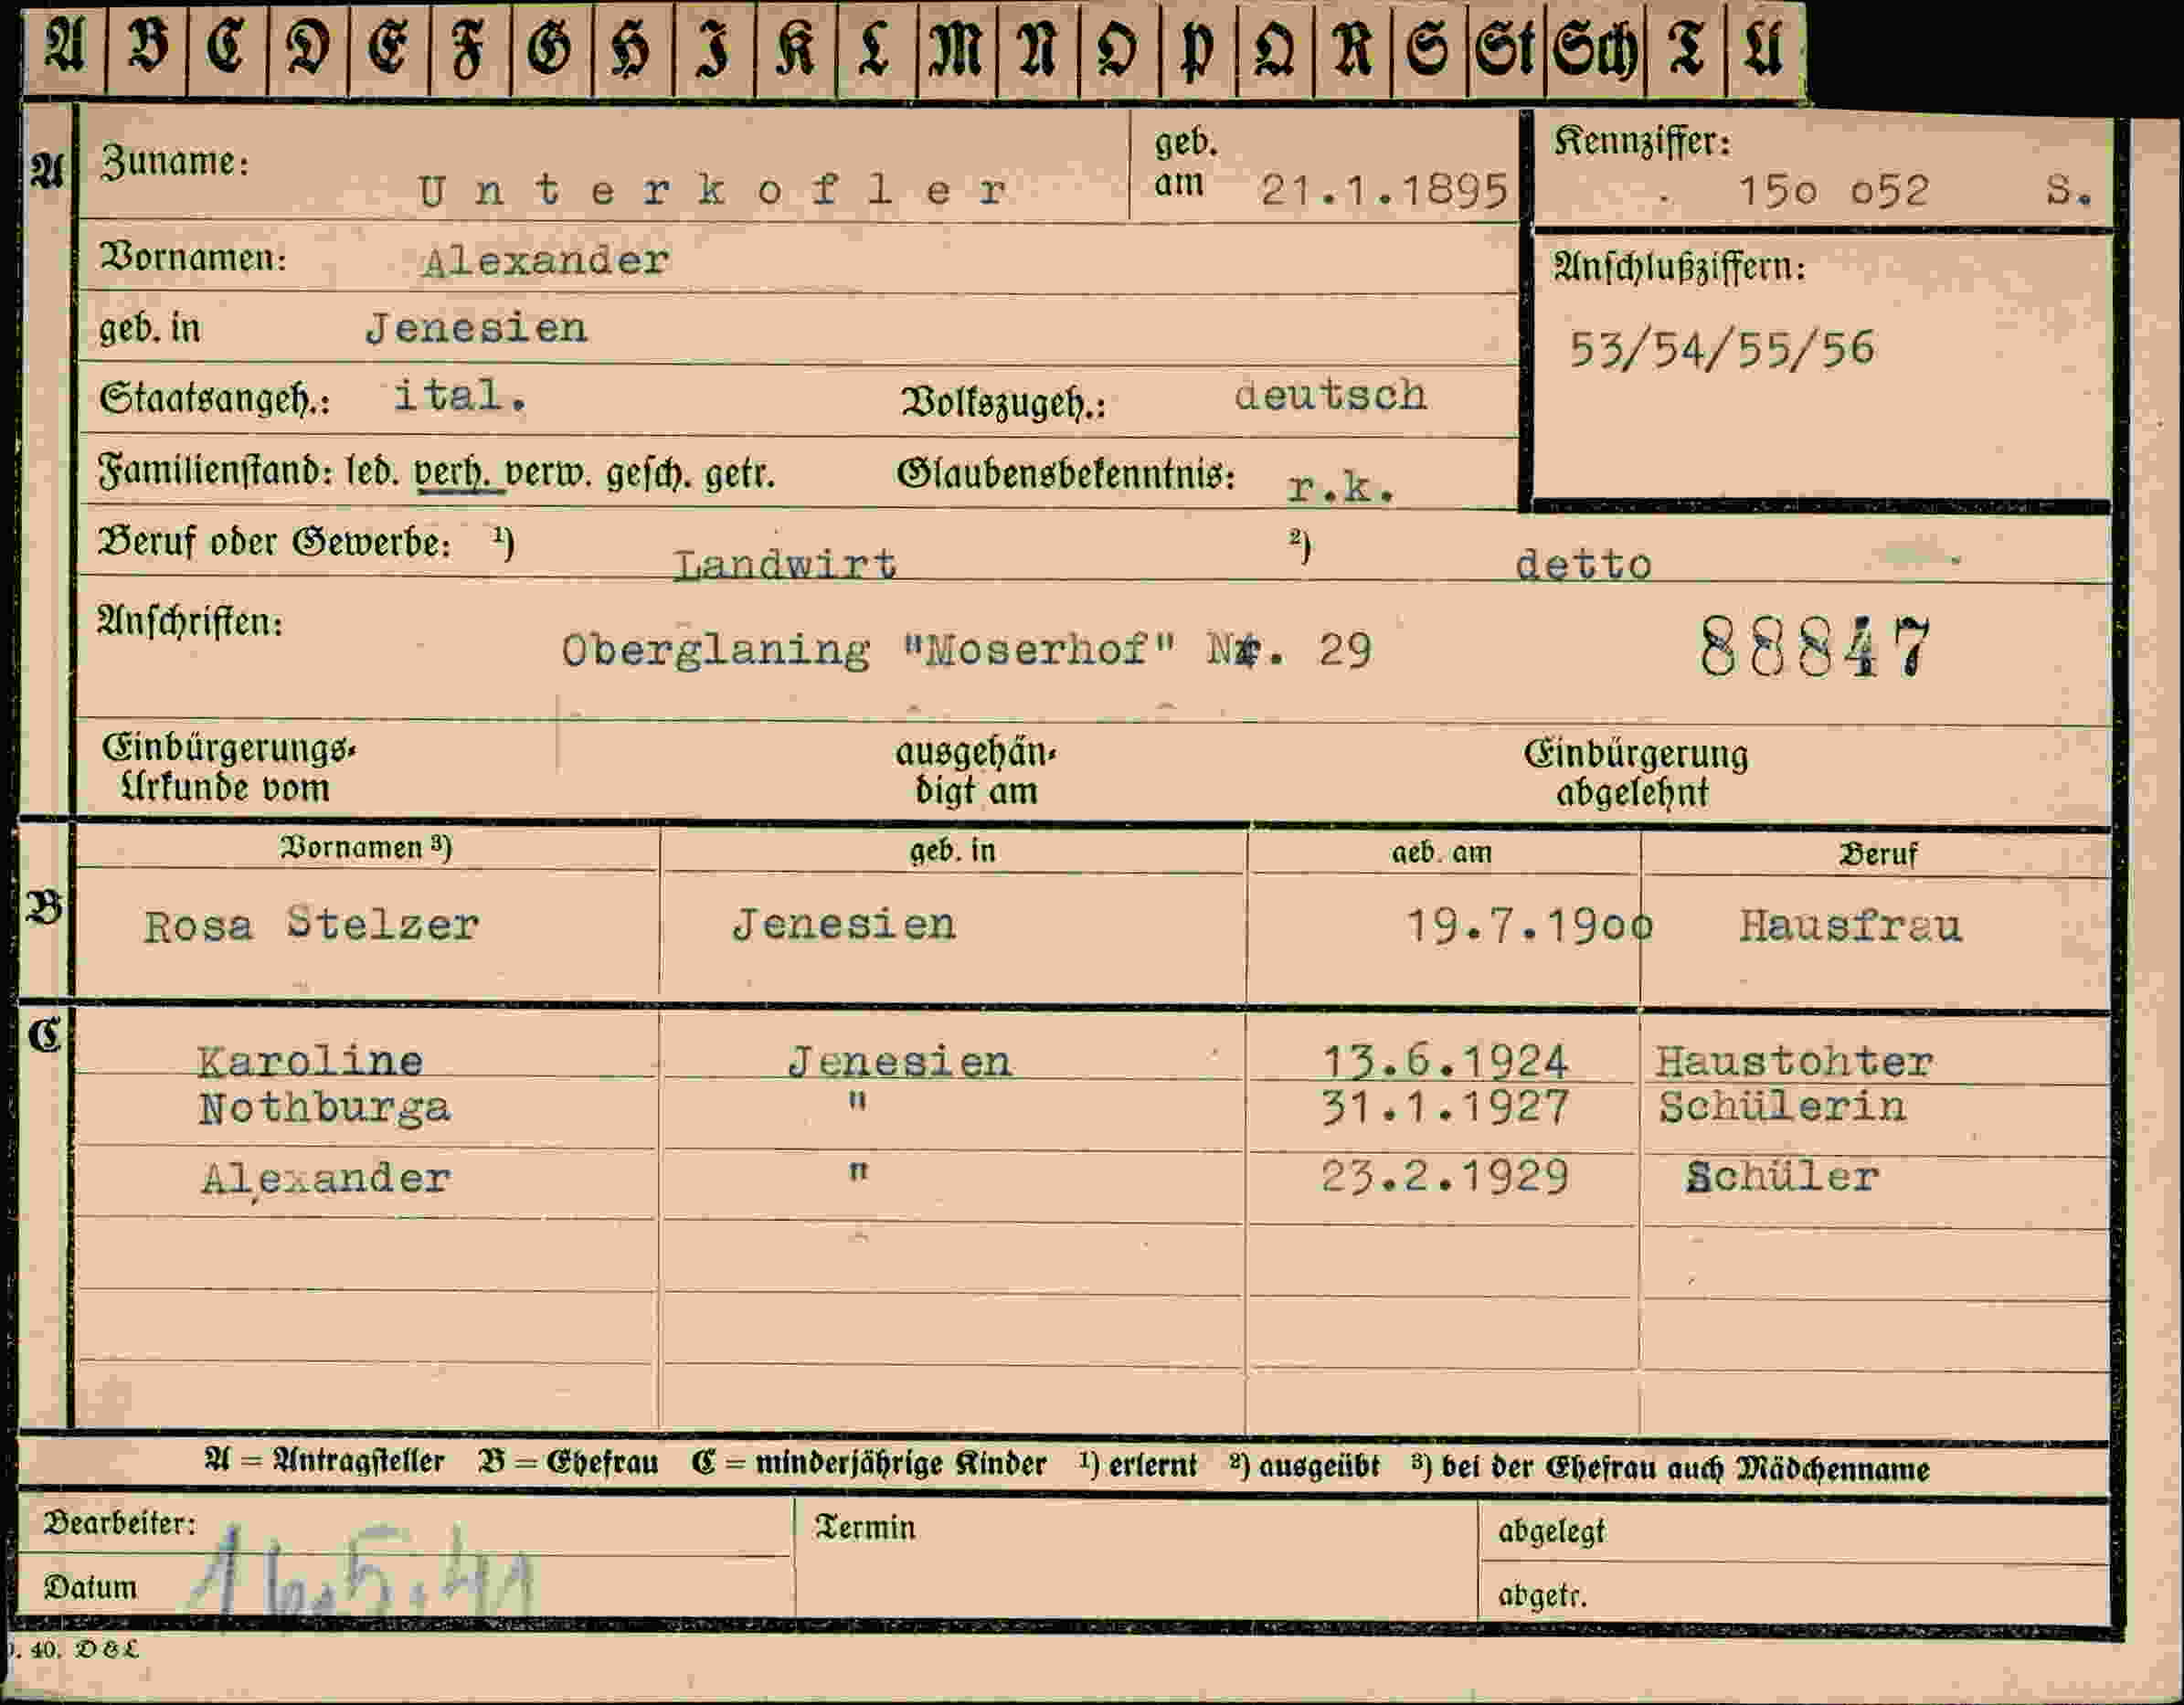 A B C D E F G H I K L M N O P Q R S St Sch T U
A
Zuname: Unterkofler geb. am 21.1.1895
Kennziffer: 15o o52 S.
Vornamen: Alexander
Anschlußziffern:
53/54/55/56
geb. in Jenesien
Staatsangeh.: ital. Volkszugeh.: deutsch
Familienstand: led. verh. verw. gesch. getr. Glaubensbekenntnis: r.k.
Beruf oder Gewerbe: 1) Landwirt 2) detto
Anschriften: Oberglaning "Moserhof" Nr. 29 88847
Einbürgerungs- ausgehän- Einbürgerung
Urkunde vom digt am abgelehnt
Vornamen 3) geb. in geb. am Beruf
B Rosa Stelzer Jenesien 19.7.19oo Hausfrau
C
Karoline Jenesien 13.6.1924 Haustohter
Nothburga " 31.1.1927 Schülerin
Alexander " 23.2.1929 Schüler
A = Antragsteller B = Ehefrau C = minderjährige Kinder 1) erlernt 2) ausgeübt 3) bei der Ehefrau auch Mädchenname
Bearbeiter: Termin abgelegt
Datum 16.5.41 abgetr.
. 40. D&L